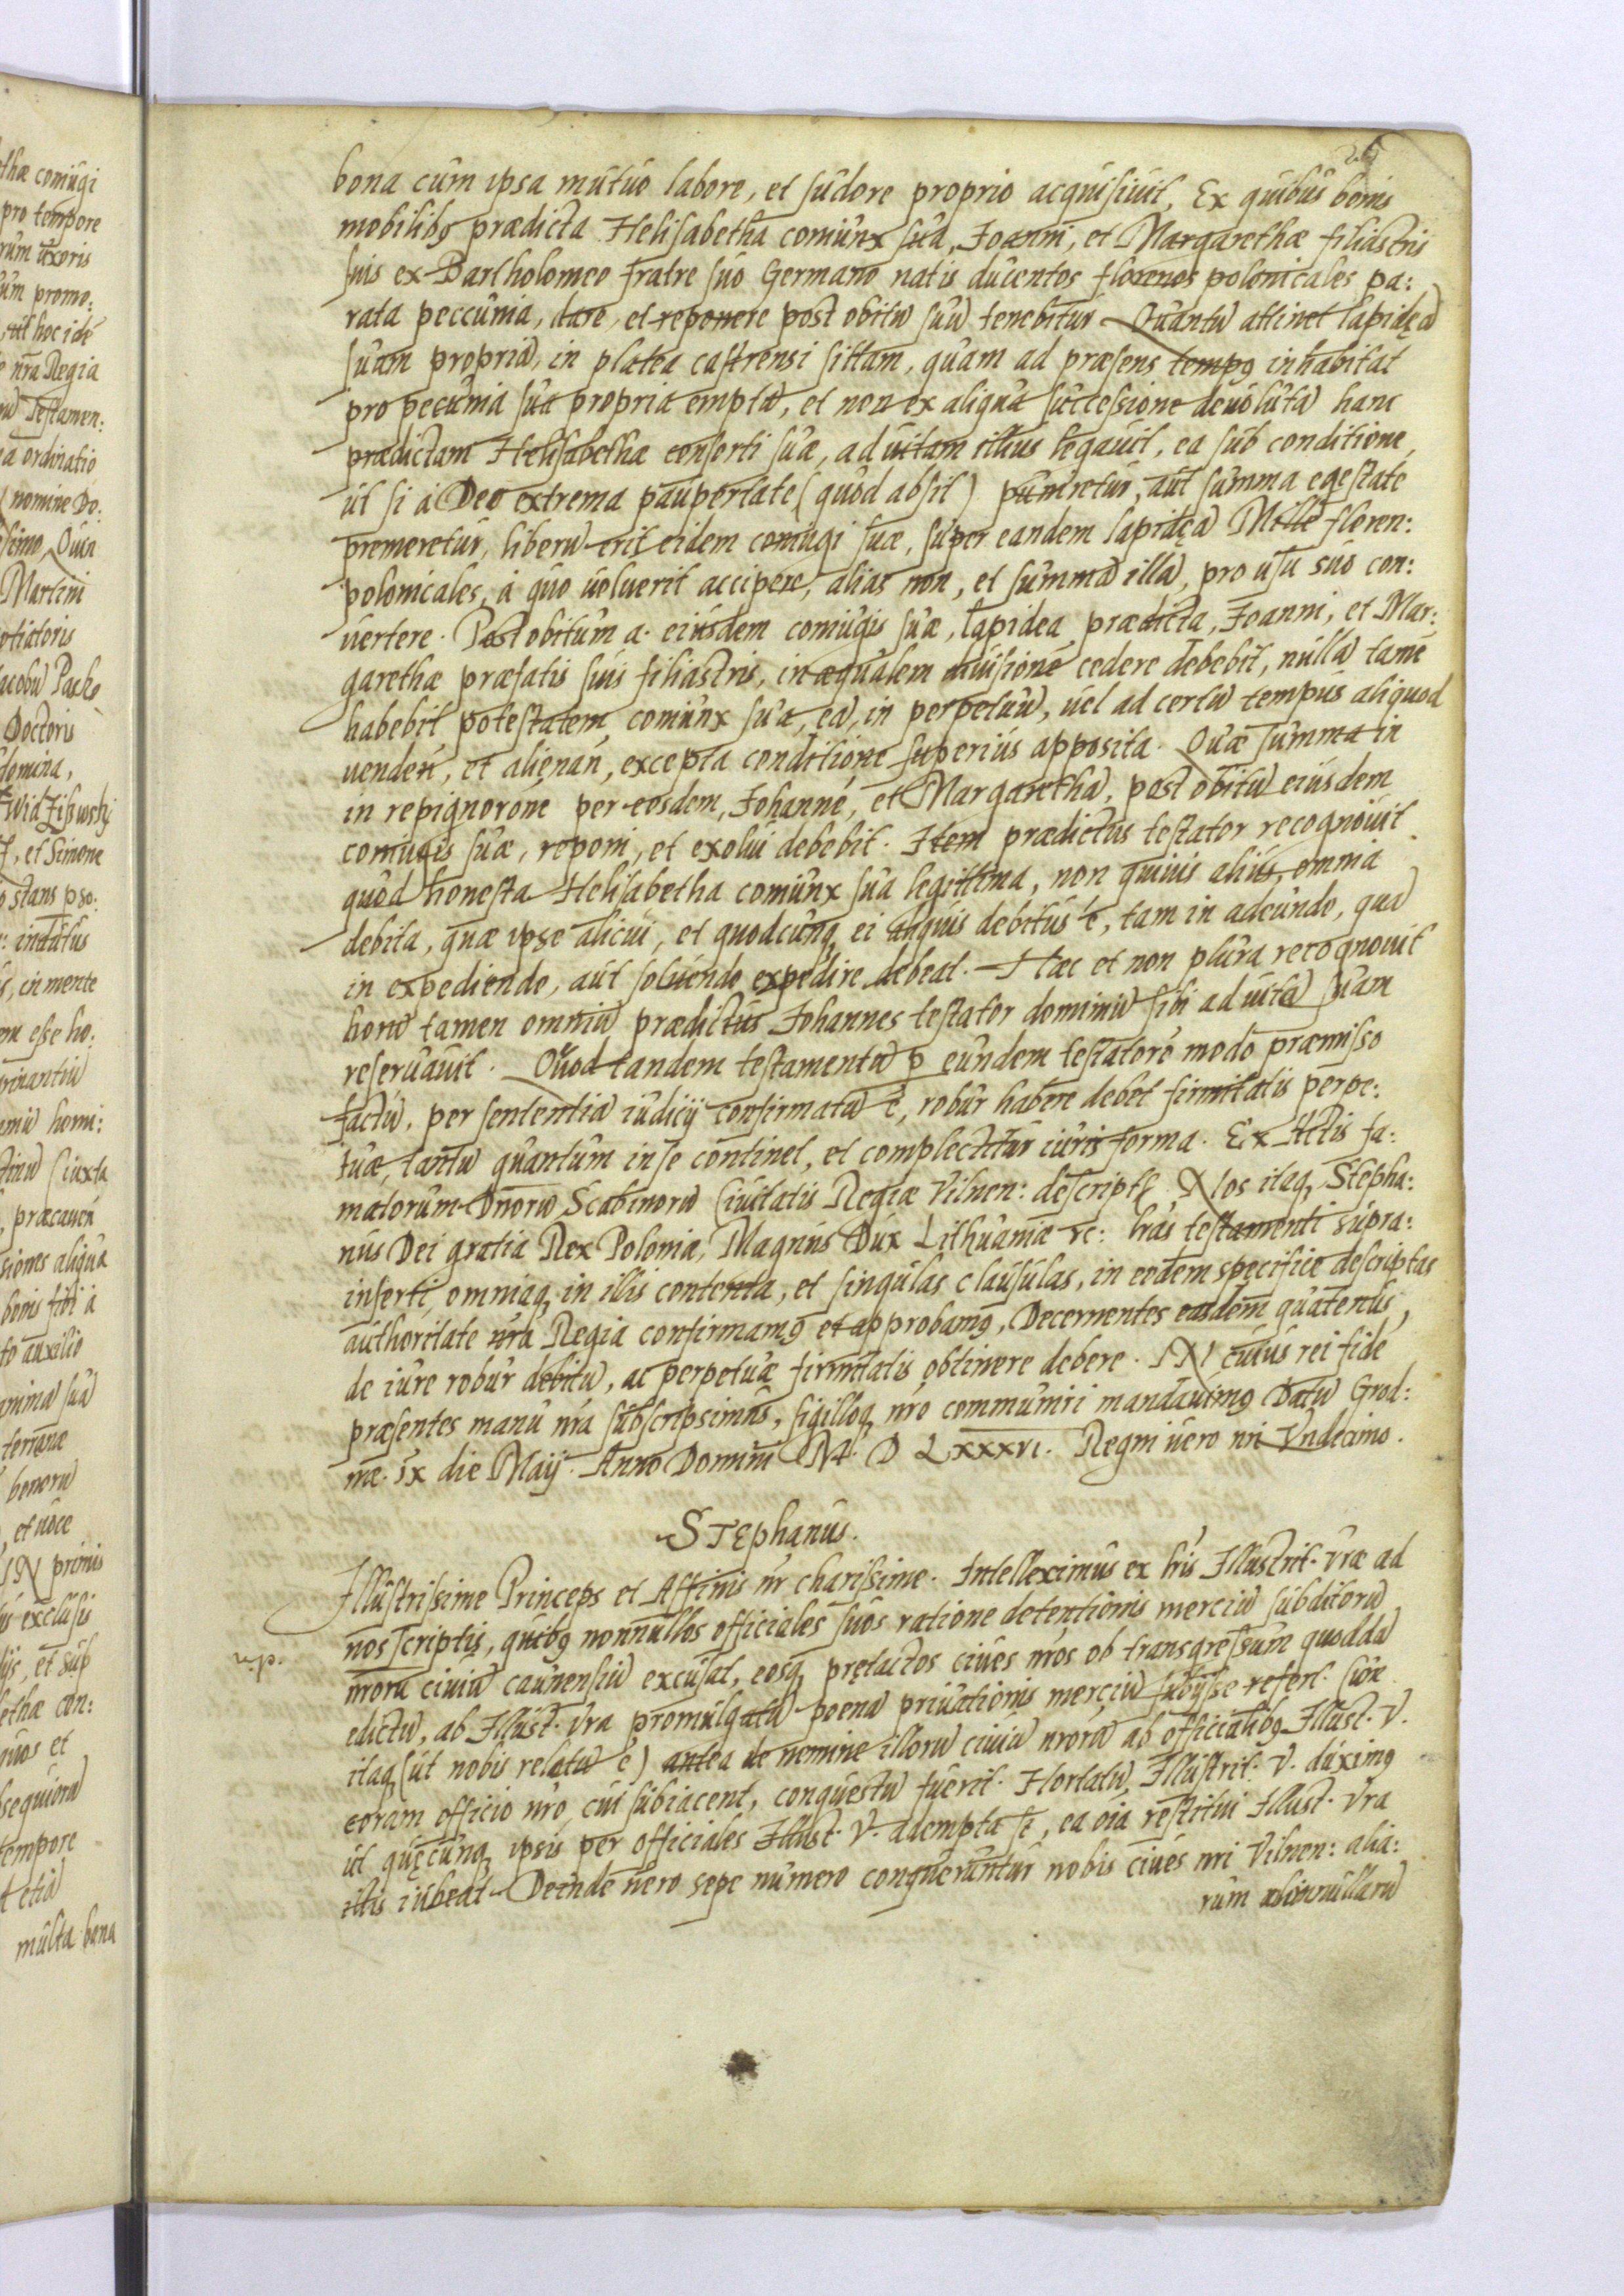 26
bona cum ipsa mutuo labore, et sudore proprio acquisiuit, Ex quibus bonis
mobilibq prædicta Helisabetha coniunx sua, Joanni, et Margarethæ filiastris
suis ex Bartholomeo fratre suo Germano natis ducentos florenos polonicales pa:
rata peccunia, dare, et reponere post obitū suū tenebitur. Quantū attinet lapideā
suam propriā, in platea castrensi sittam, quam ad præsens tempq inhabitat
pro pecunia sua propria emptā, et non ex aliqua successione deuolutā hanc
prædictam Helisabethæ consorti suæ, ad uitam illius legauit, ea sub conditione,
ut si à Deo extrema paupertate (quod absit) puniretur, aut summa egestate
premeretur, liberū erit eidem coniugi suæ, super eandem lapideā Mille floren:
polonicales, à quo uoluerit accipere, alias non, et summā illā, pro usu suo con:
uertere. Post obitum a. eiusdem coniugis suæ, lapidea prædicta, Joanni, et Mar:
garethæ præfatis suis filiastris, in æqualem diuisionē cedere debebit, nullā tamē
habebit potestatem coniunx sua, eā, in perpetuū, uel ad certū tempus aliquod
uendeń, et alienań, excepta conditione superius apposita. Quæ summa in
in repignorōne per eosdem, Johannē, et Margarethā, post obitū eiusdem
coniugis suæ, reponi, et exolui debebit. Item prædictus testator recognouit
quod honesta Helisabetha coniunx sua legittima, non quiuis alius, omnia
debita, quæ ipse alicui, et quodcunq ei aliquis debitus ē, tam in adeundo, quā
in expediendo, aut soluendo expedire debeat. Hæc et non plura recognouit
horū tamen omniū prædictus Johannes testator dominiū sibi ad uitā suam
reseruauit. Quod tandem testamentū p eundem testatorē modo præmisso
factū, per sententiā iudicij confirmatū ē, robur habere debet firmitatis perpe:
tuæ, tantū quantum in se continet, et complectitur iuris forma. Ex Actis fa:
matorum Dnorū Scabinorū Ciuitatis Regiæ Vilnen: descript. Nos itaq Stepha:
nus Dei gratia Rex Poloniæ, Magnus Dux Lithuaniæ rc: lras testamenti supra:
inserti, omniaq in illis contenta, et singulas clausulas, in eodem specifice descriptas
authoritate nra Regia confirmamq et approbamq, Decernentes easdem quatenus,
de iure robur debitū, ac perpetuæ firmitatis obtinere debere. IN cuius rei fidē
præsentes manu nra subscripsimus, sigilloq nro communiri mandauimq Datū Grod:
næ. IX die Maij. Anno Domini M. D LXXXVI. Regni uero nri Vndecimo.
STEphanus.
Illustrissime Princeps et Affinis nr charissime. Intelleximus ex lris Illustrit. vræ ad
nos scriptis, quibq nonnullos officiales suos ratione detentionis merciū subditorū
nrorū ciuiū caunensiū excusat, eosq prętactos ciues nros ob transgressum quoddā
edictū, ab Illust. vra promulgatū poenā priuationis merciū subijsse refert.
itaq (ut nobis relatū ē) antea de nemine illorū ciuiū nrorū ab officialibq Illust. V.
coram officio nro, cui subiacent, conquestū fuerit. Hortatū, Illustrit. V. duximq
ut quęcunq ipsis per officiales Illust. V. adempta st, ea oia restitui Illust. Vra
illis iubeat. Deinde uero sepe numero conqueruntur nobis ciues nri Vilnen: alia:
rum nonnullarū